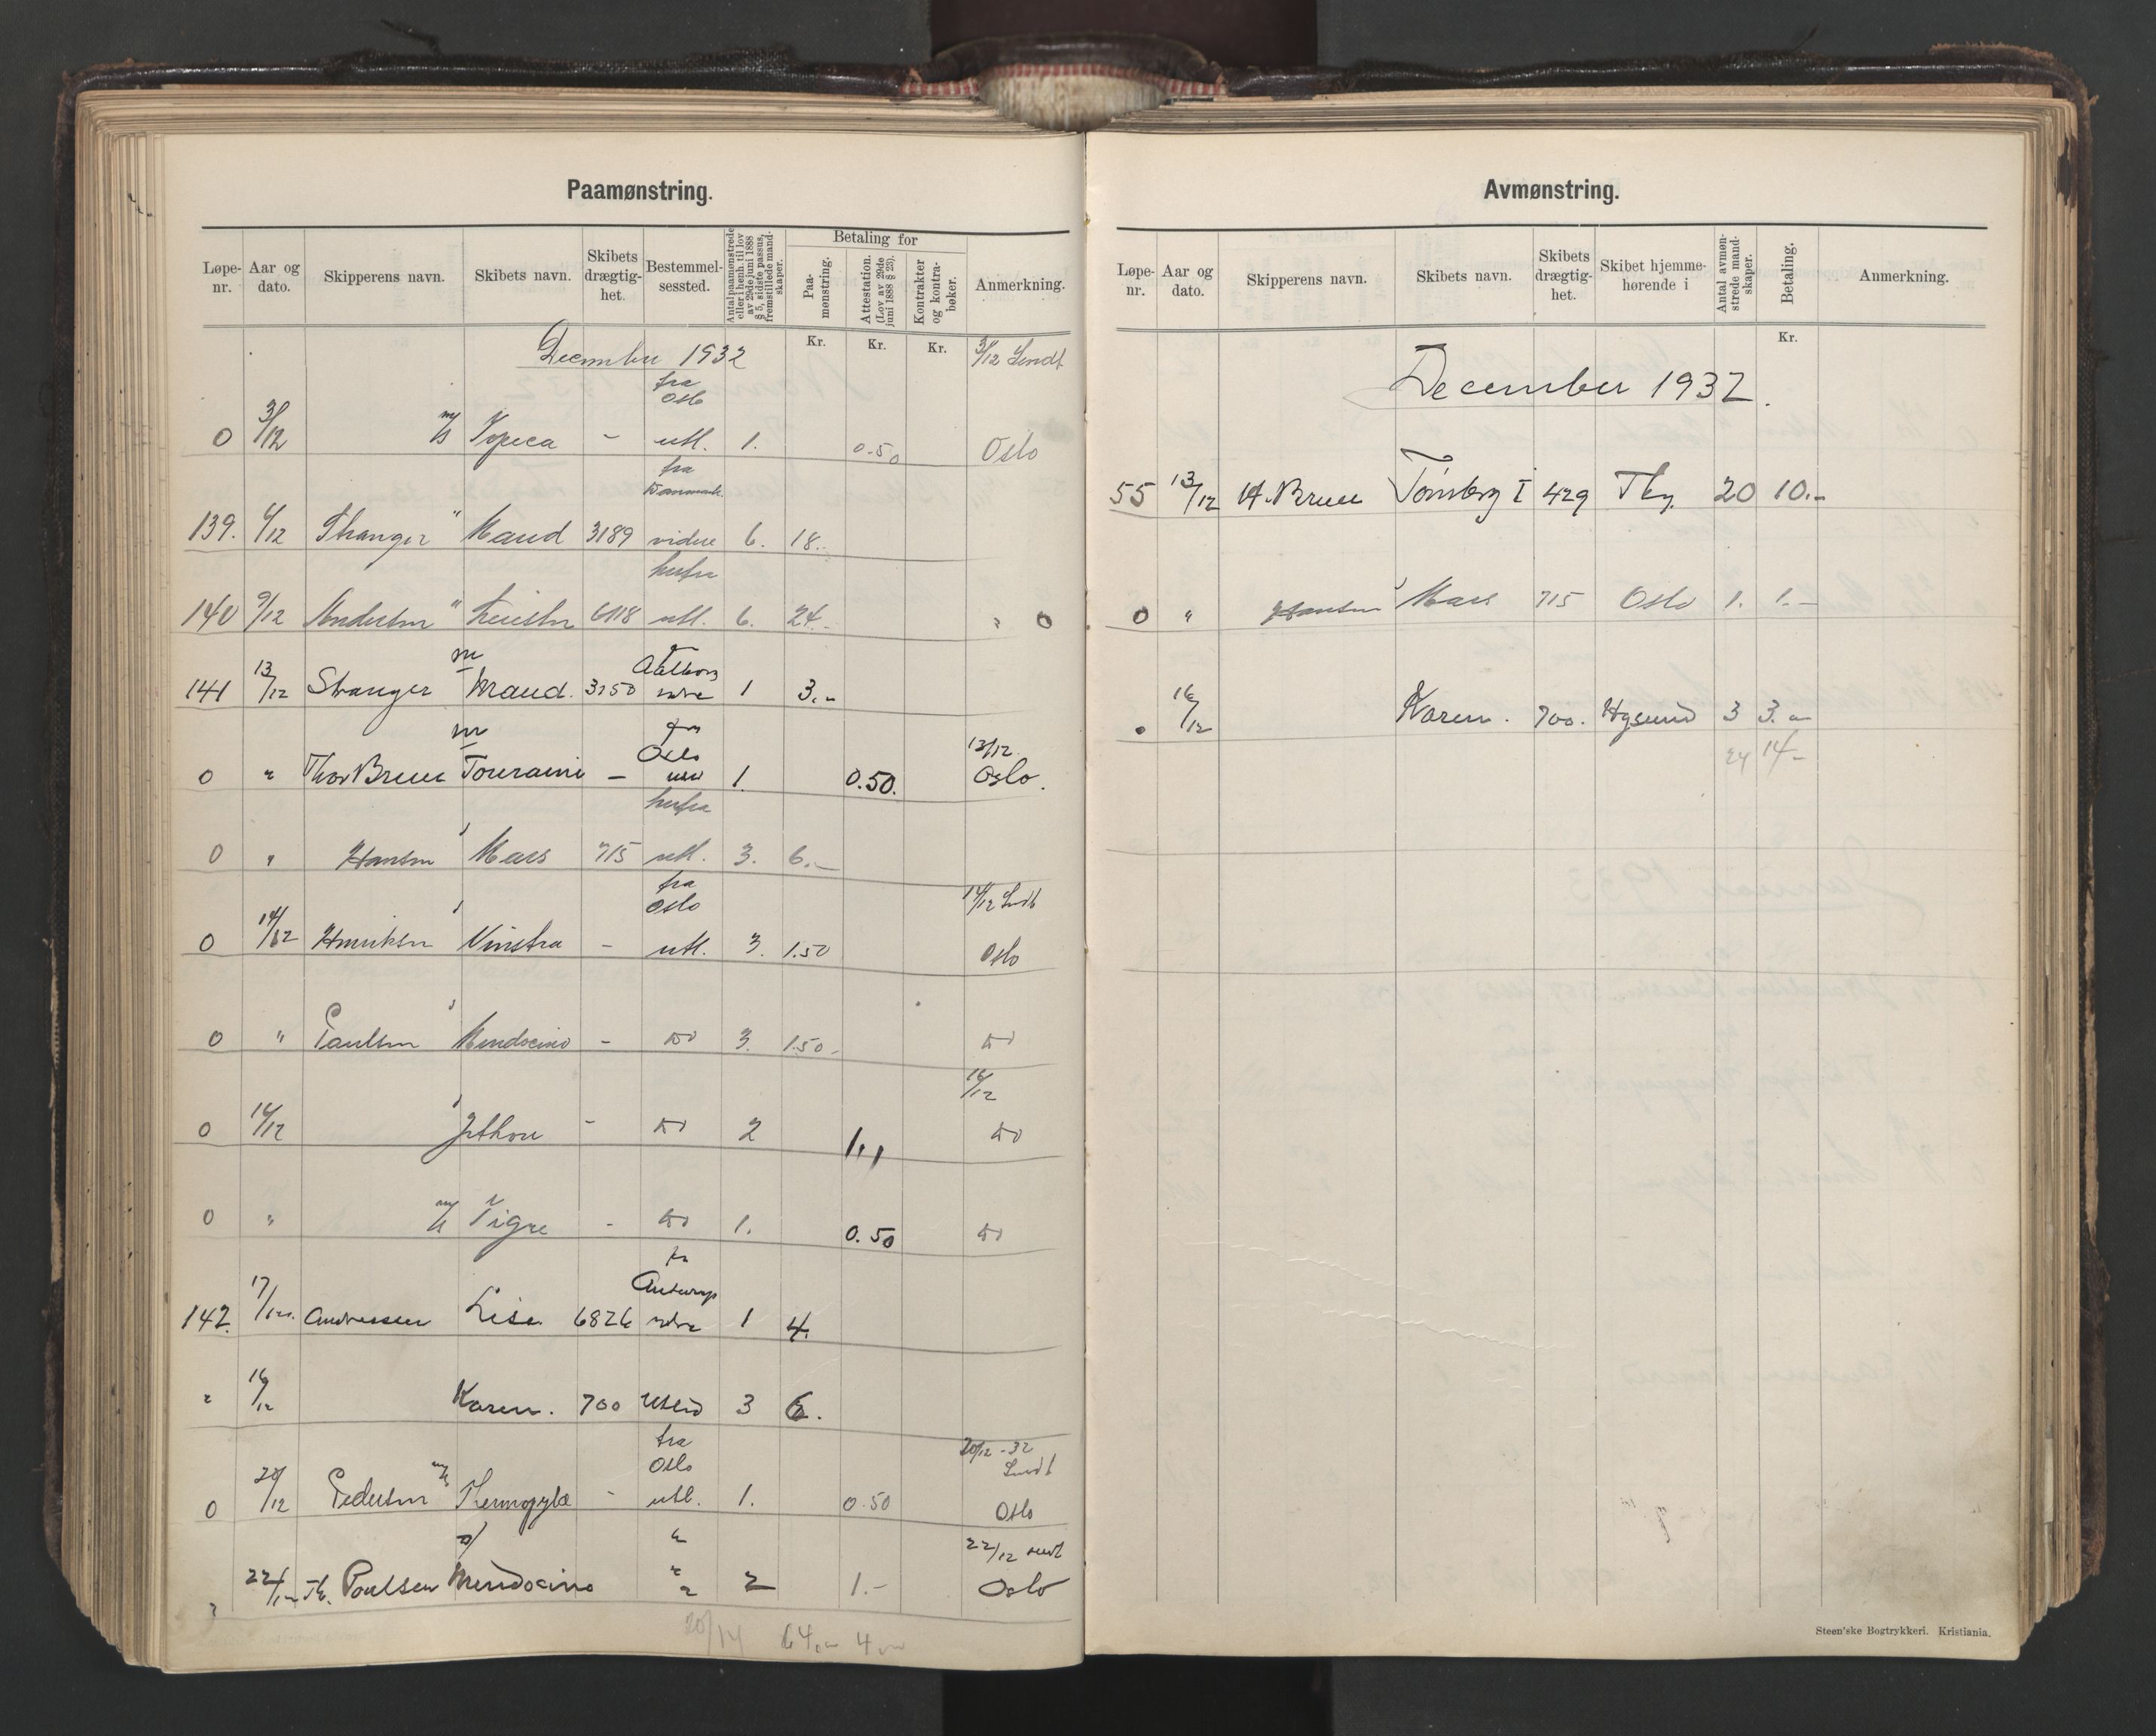 Paamønstring.
Løpe-nr. Aar og dato. Skipperens navn. Skibets navn. Skibets drægtig-het. Bestemmel-sessted. Antal paamønstrede eller i henh. til lov av 29de juni 1888 § 5, sidste passus, fremstillede mand-skaper. Betaling for Paa-mønstring. Attestation. (Lov av 29de juni 1888 § 23). Kontrakter og kontra-bøker. Anmerkning.
Kr. Kr. Kr.
December 1932 3/12 Sendt
fra
Oslo
0 3/12 m/s Topeca - utl. 1. 0.50 Oslo
fra
Danmark
139. 6/12 Stranger " Maud 3189 videre 6. 18.-
herfra
140 9/12 Andersen " 6118 utl. 6. 24.- " 0
m
Aalborg
141 13/12 Stranger Maud. 3150 1 3.-
m fra
Oslo 13/12
0 " Thor Bruu Touraine - 1. 0.50. Oslo.
herfra
0 " Hansen s Mars 715 utl. 3. 6.-
fra
Oslo 14/12 Sendt
0 14/12 Henriksen Vinstra - utl. 3. 1.50 Oslo
0 " Paulsen Mendocino - do 3. 1.50- do
16/12
0 16/12 Jethou - do 2 1,, do
0 " m/s Tigre - do 1. 0.50 do
fra
Antwerp
142. 17/12. Andressen Lise 6826 1 4.
" 16/12 Karen. 700 Utlid 3 6.
fra
Oslo 20/12 - 32
Sendt
0 20/12 Pedersen m/s Thermopylæ - utl. 1. 0.50 Oslo
22/12 sendt
" 22/12 Th. Poulsen Mendocino " 2 1.- Oslo
20/14 64,- 4,-
Avmønstring.
Løpe-nr. Aar og dato. Skipperens navn. Skibets navn. Skibets drægtig-het. Skibet hjemme-hørende i Antal avmøn-strede mand-skaper. Betaling. Anmerkning.
Kr.
December 1932.
55 13/12 A. Bruu Tønsberg I 429 Tbg. 20 10.-
0 " Hansen s Mars 715 Oslo 1. 1.-
" 16/12 Karen. 700. Hgsund 3 3.-
24 14-
Steen'ske Bogtrykkeri. Kristiania.